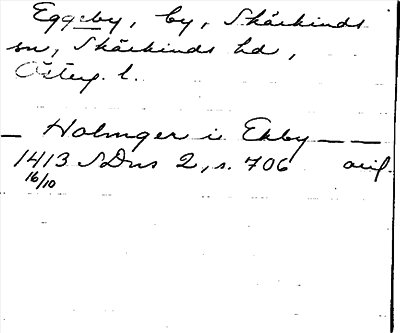 Eggeby, by, Skärkinds
sn, Skärkinds hd,
Österg. l.
— Holmger i Ekby — —
1413 SDns 2, s. 706 avil.
16/10